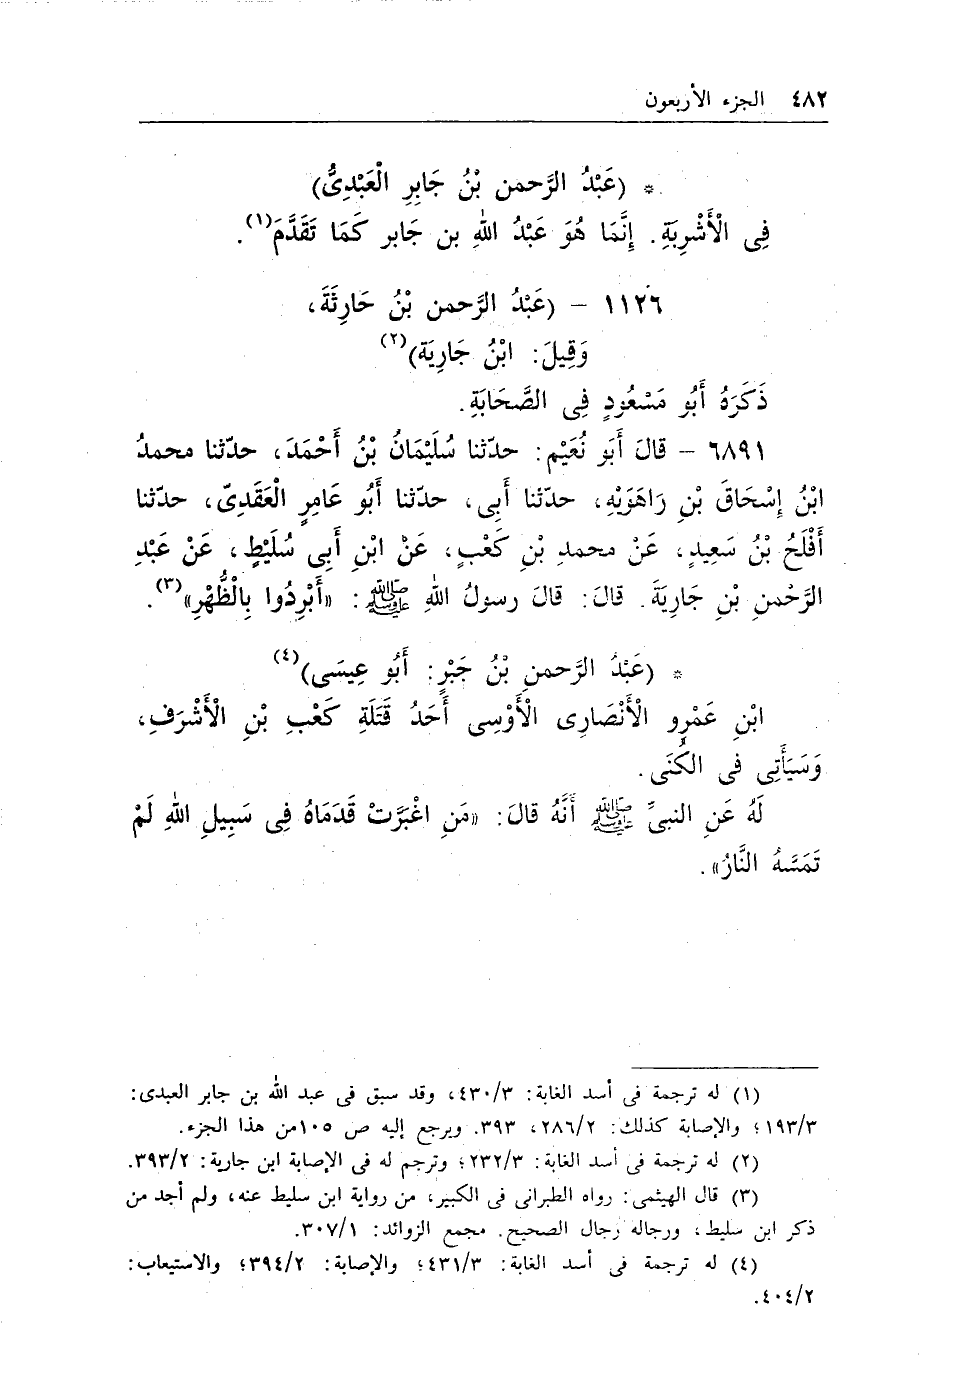 ٤٨٢ الجزء الأربعون
* (عَبْدُ الرَّحمن بْنُ جَابِرِ الْعَبْدِىُّ)
فِى الْأَشْرِبَةِ. إِنَّمَا هُوَ عَبْدُ اللهِ بن جَابر كَمَا تَقَدَّمَ(١).
١١٢٦ – (عَبْدُ الرَّحمن بْنُ حَارِثَةَ،
وَقِيلَ: ابْنُ جَارِيَة)(٢)
ذَكَرَهُ أَبُو مَسْعُودٍ فِى الصَّحَابَةِ.
٦٨٩١ – قَالَ أَبَو نُعَيْم: حدّثنا سُلَيْمَانُ بْنُ أَحْمَدَ، حدّثنا محمدُ
ابْنُ إِسْحَاقَ بْنِ رَاهَوَيْهِ، حدّثنا أَبِى، حدّثنا أَبُو عَامِرٍ الْعَقَدِىّ، حدّثنا
أَفْلَحُ بْنُ سَعِيدٍ، عَنْ محمدِ بْنِ كَعْبٍ، عَنْ ابْنِ أَبِى سُلَيْطٍ، عَنْ عَبْدِ
الرَّحْمنِ بْنِ جَارِيَةَ. قَالَ: قَالَ رسولُ اللهِ ﷺ: «أَبْرِدُوا بِالْظُّهْرِ»(٣).
* (عَبْدُ الرَّحمنِ بْنُ جَبْرٍ: أَبُو عِيسَى)(٤)
ابْنِ عَمْرِو الْأَنْصَارِى الْأَوْسِى أَحَدُ قَتَلَةِ كَعْبِ بْنِ الْأَشْرَفِ،
وَسَيَأَتِى فى الكُنَى.
لَهُ عَنِ النبىِّ ﷺ أَنَّهُ قَالَ: «مَنِ اغْبَرَّتْ قَدَمَاهُ فِى سَبِيلِ اللهِ لَمْ
تَمَسَّهُ النَّارُ».
(١) له ترجمة فى أسد الغابة: ٤٣٠/٣، وقد سبق فى عبد الله بن جابر العبدى:
١٩٣/٣؛ والإصابة كذلك: ٢٨٦/٢، ٣٩٣. ويرجع إليه ص ١٠٥من هذا الجزء.
(٢) له ترجمة فى أسد الغابة: ٢٣٢/٣؛ وترجم له فى الإصابة ابن جارية: ٣٩٣/٢.
(٣) قال الهيثمى: رواه الطبرانى فى الكبير، من رواية ابن سليط عنه، ولم أجد من
ذكر ابن سليط، ورجاله رجال الصحيح. مجمع الزوائد: ٣٠٧/١.
(٤) له ترجمة فى أسد الغابة: ٤٣١/٣؛ والإصابة: ٣٩٤/٢؛ والاستيعاب:
٤٠٤/٢.